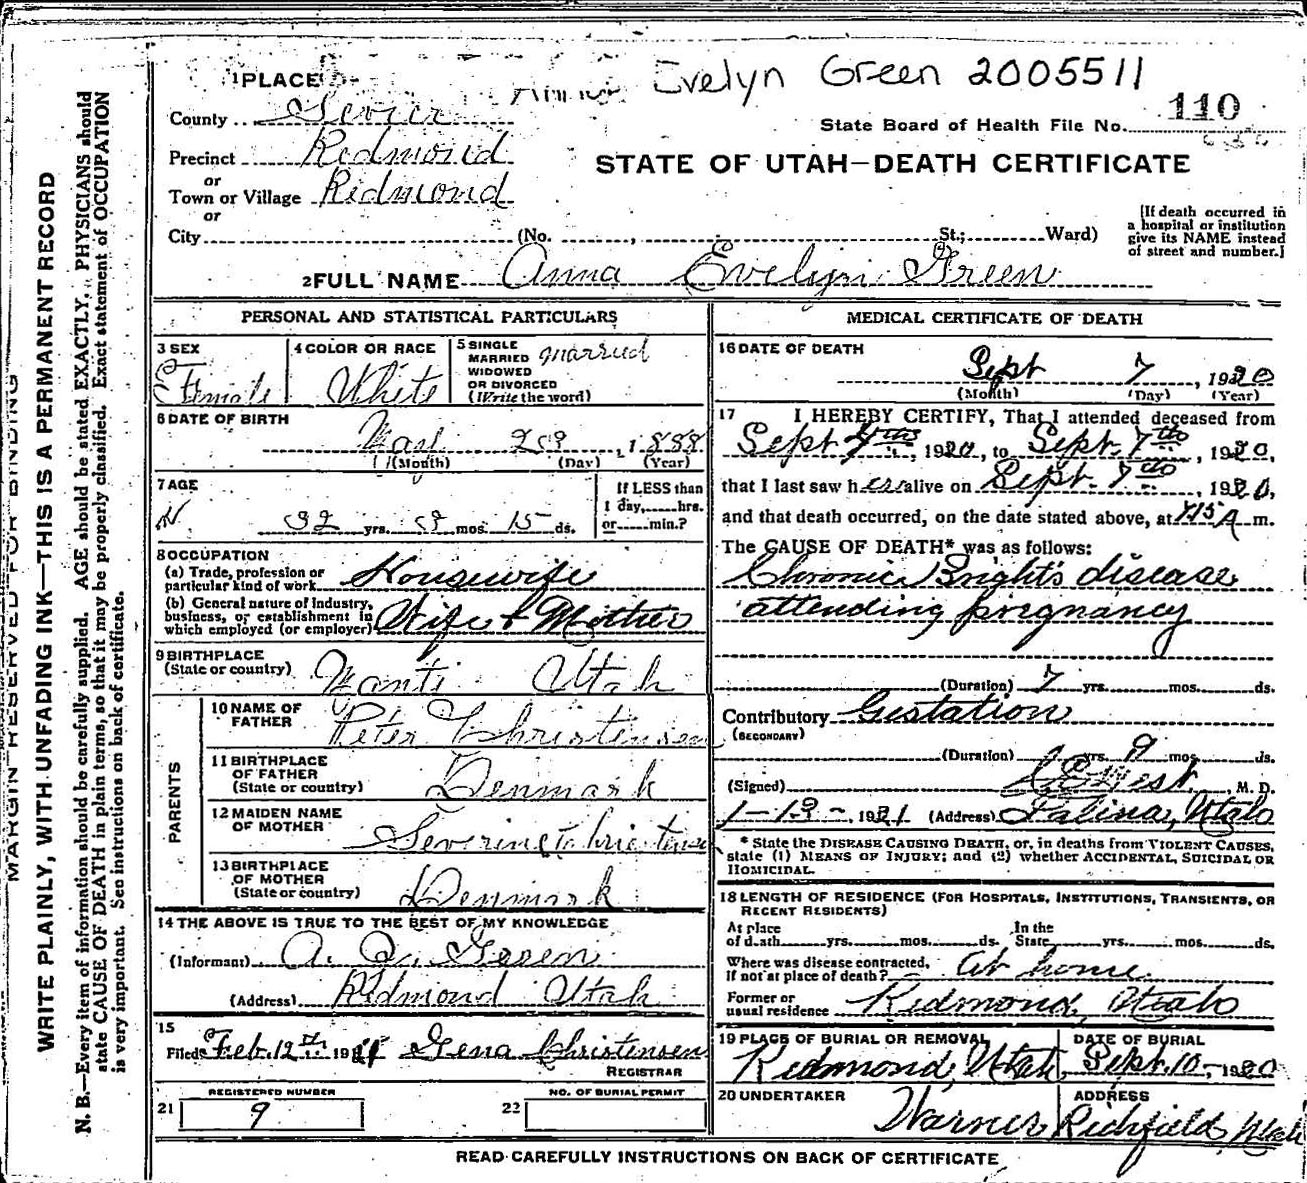 Evelyn Green 2005511
1 PLACE
110
County Sevier
State Board of Health File No.
Precinct Redmond
STATE OF UTAH—DEATH CERTIFICATE
or
Town or Village Redmond
or
City (No. , St.; Ward)
[If death occurred in
a hospital or institution
give its NAME instead
of street and number.]
2 FULL NAME Anna Evelyn Green
PERSONAL AND STATISTICAL PARTICULARS
3 SEX
Female
4 COLOR OR RACE
White
5 SINGLE
MARRIED
WIDOWED
OR DIVORCED
(Write the word)
married
6 DATE OF BIRTH
1888
(Month) (Day) (Year)
7 AGE
32 yrs. mos. 15 ds.
If LESS than
1 day, hrs.
or min.?
8 OCCUPATION
(a) Trade, profession or
particular kind of work Housewife
(b) General nature of Industry,
business, or establishment in
which employed (or employer) Wife & Mother
9 BIRTHPLACE
(State or country) Manti Utah
PARENTS
10 NAME OF
FATHER Peter Christensen
11 BIRTHPLACE
OF FATHER
(State or country) Denmark
12 MAIDEN NAME
OF MOTHER
13 BIRTHPLACE
OF MOTHER
(State or country) Denmark
14 THE ABOVE IS TRUE TO THE BEST OF MY KNOWLEDGE
(Informant) Green
(Address) Redmond Utah
15
Filed Feb. 12th 19 Gena Christensen
REGISTRAR
REGISTERED NUMBER
21 9
NO. OF BURIAL PERMIT
22
MEDICAL CERTIFICATE OF DEATH
16 DATE OF DEATH
Sept 7, 1920
(Month) (Day) (Year)
17 I HEREBY CERTIFY, That I attended deceased from
Sept , 1920, to Sept. 7th, 1920,
that I last saw her alive on Sept. 7th, 1920,
and that death occurred, on the date stated above, at A m.
The CAUSE OF DEATH* was as follows:
Chronic Bright's disease
attending pregnancy
(Duration) 7 yrs. mos. ds.
Contributory Gestation
(SECONDARY)
(Duration) yrs. 9 mos. ds.
(Signed) West, M. D.
1921 (Address) Salina, Utah
* State the DISEASE CAUSING DEATH, or, in deaths from VIOLENT CAUSES,
state (1) MEANS OF INJURY; and (2) whether ACCIDENTAL, SUICIDAL OR
HOMICIDAL.
18 LENGTH OF RESIDENCE (FOR HOSPITALS, INSTITUTIONS, TRANSIENTS, OR
RECENT RESIDENTS)
At place In the
of death yrs. mos. ds. State yrs. mos. ds.
Where was disease contracted,
If not at place of death? At home
Former or
usual residence Redmond, Utah
19 PLACE OF BURIAL OR REMOVAL
Redmond, Utah
DATE OF BURIAL
Sept. 10, 1920
20 UNDERTAKER
Warner
ADDRESS
Richfield, Utah
READ CAREFULLY INSTRUCTIONS ON BACK OF CERTIFICATE
MARGIN RESERVED FOR BINDING
WRITE PLAINLY, WITH UNFADING INK—THIS IS A PERMANENT RECORD
N. B.—Every item of information should be carefully supplied. AGE should be stated EXACTLY. PHYSICIANS should
state CAUSE OF DEATH in plain terms, so that it may be properly classified. Exact statement of OCCUPATION
is very important. See instructions on back of certificate.